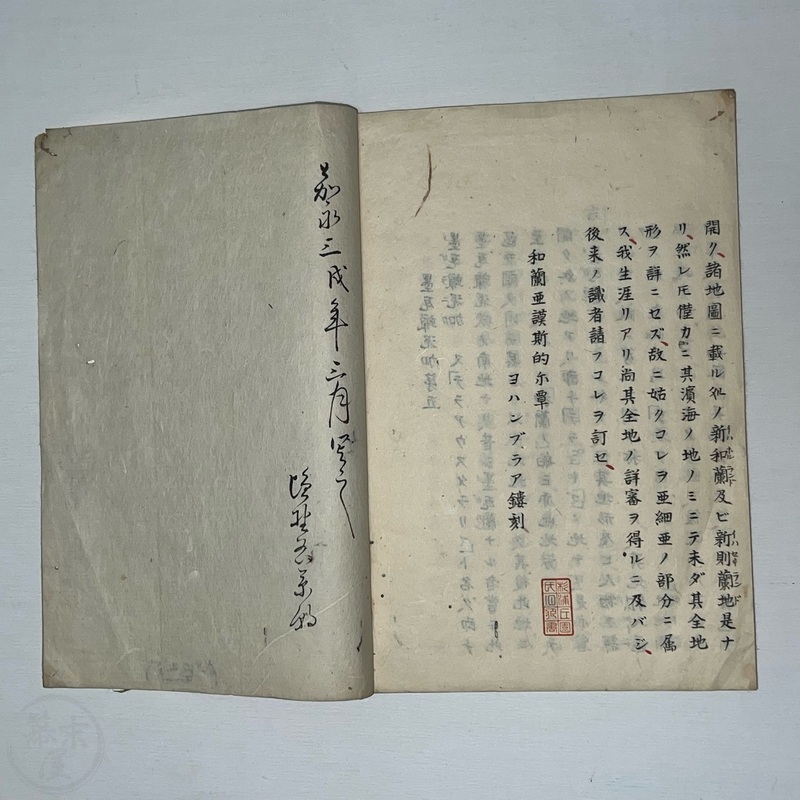 開ク、諸地圖ニ載ル処ノ新和蘭及ビ新則蘭地是ナ
リ、然レㇳモ僅カニ其濱海ノ地ノミニテ未ダ其全地
形ヲ詳ニセズ、故ニ姑クコレヲ亜細亜ノ部分ニ属
ス、我生涯リアリ尚其全地ノ詳審ヲ得ルニ及バジ、
後来ノ識者請フコレヲ訂セ、
和蘭亜謨斯的尓覃
ヨハンブラア鏤刻
嘉永三戌年三月